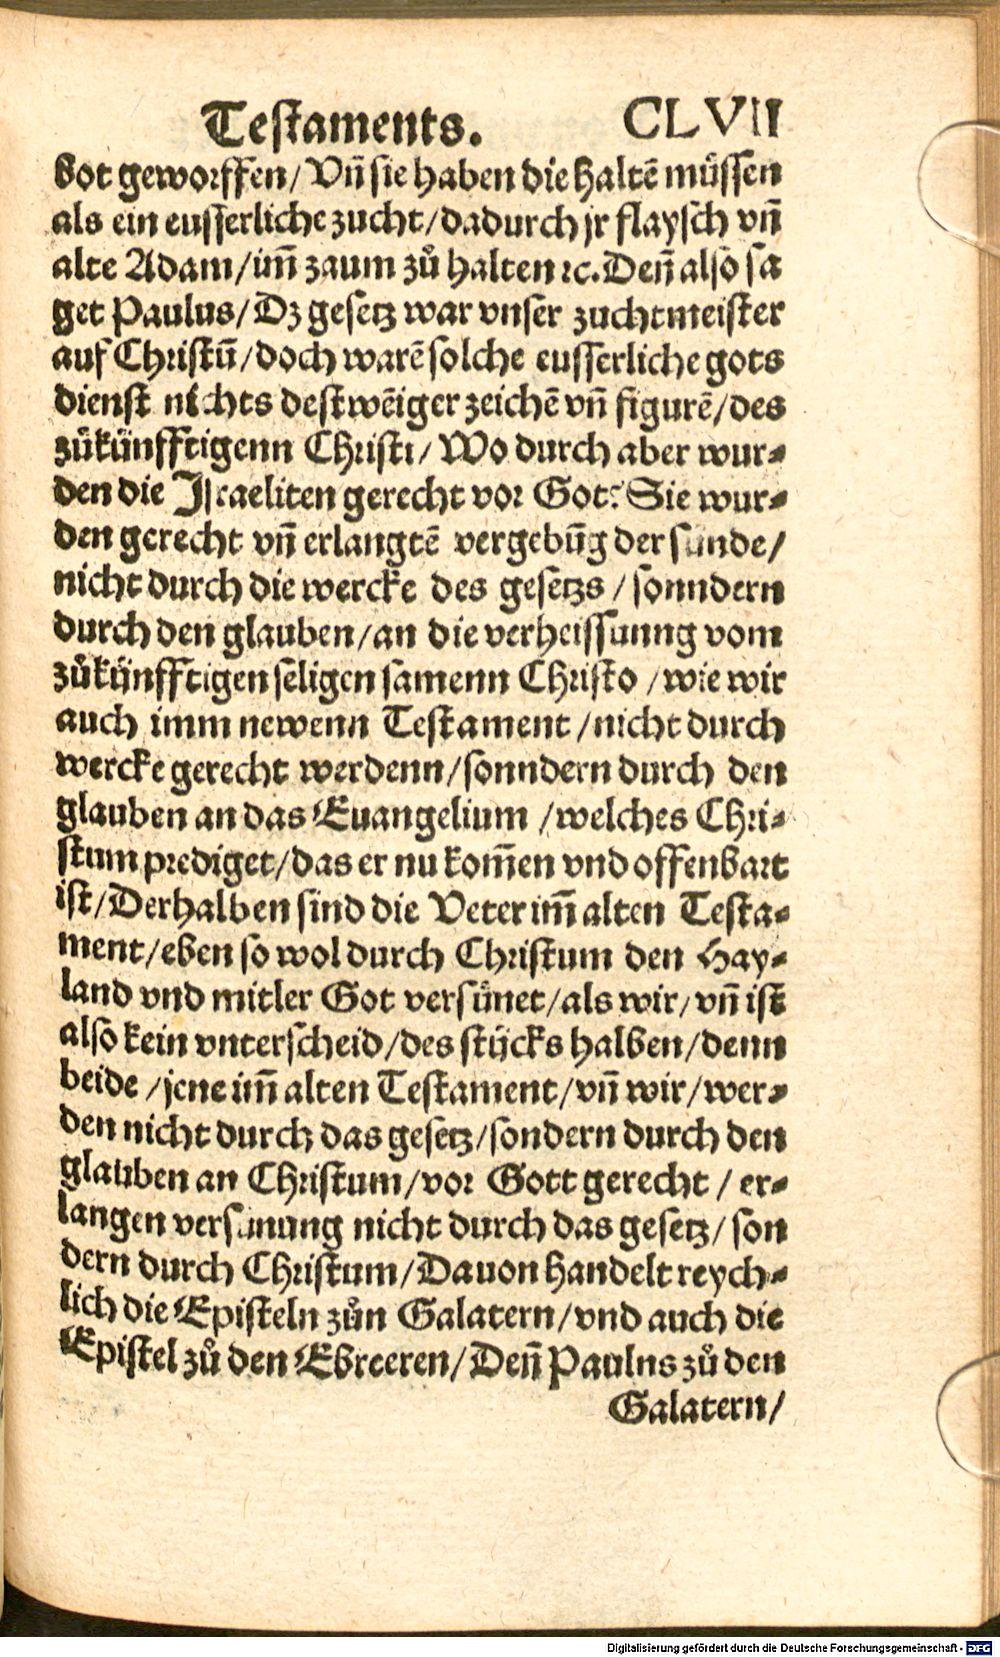 Testaments. CLVII
bot geworffen/ Vñ sie haben die haltẽ müssen
als ein eusserliche zucht/ dadurch jr flaysch vñ
alte Adam/ im̃ zaum zů halten ⁊c. Deñ also sa
get Paulus/ Dz gesetz war vnser zuchtmeister
auf Christũ/ doch warẽ solche eusserliche gots
dienst nichts destwẽiger zeichẽ vñ figurẽ/ des
zůkünfftigenn Christi/ Wo durch aber wur-
den die Israeliten gerecht vor Got? Sie wur-
den gerecht vñ erlangtẽ vergebũg der sünde/
nicht durch die wercke des gesetzs / sonndern
durch den glauben/ an die verheissunng vom
zůkünfftigen seligen samenn Christo / wie wir
auch imm newenn Testament / nicht durch
wercke gerecht werdenn/ sonndern durch den
glauben an das Euangelium / welches Chri-
stum prediget/ das er nu kom̃en vnd offenbart
ist/ Derhalben sind die Veter im̃ alten Testa-
ment/ eben so wol durch Christum den Hay-
land vnd mitler Got versünet/ als wir/ vñ ist
also kein vnterscheid/ des stücks halben/ denn
beide / jene im̃ alten Testament/ vñ wir/ wer-
den nicht durch das gesetz/ sondern durch den
glauben an Christum/ vor Gott gerecht / er-
langen versünung nicht durch das gesetz/ son
dern durch Christum/ Dauon handelt reych-
lich die Episteln zůn Galatern/ vnd auch die
Epistel zů den Ebreeren/ Deñ Paulns zů den
Galatern/
Digitalisierung gefördert durch die Deutsche Forschungsgemeinschaft - DFG